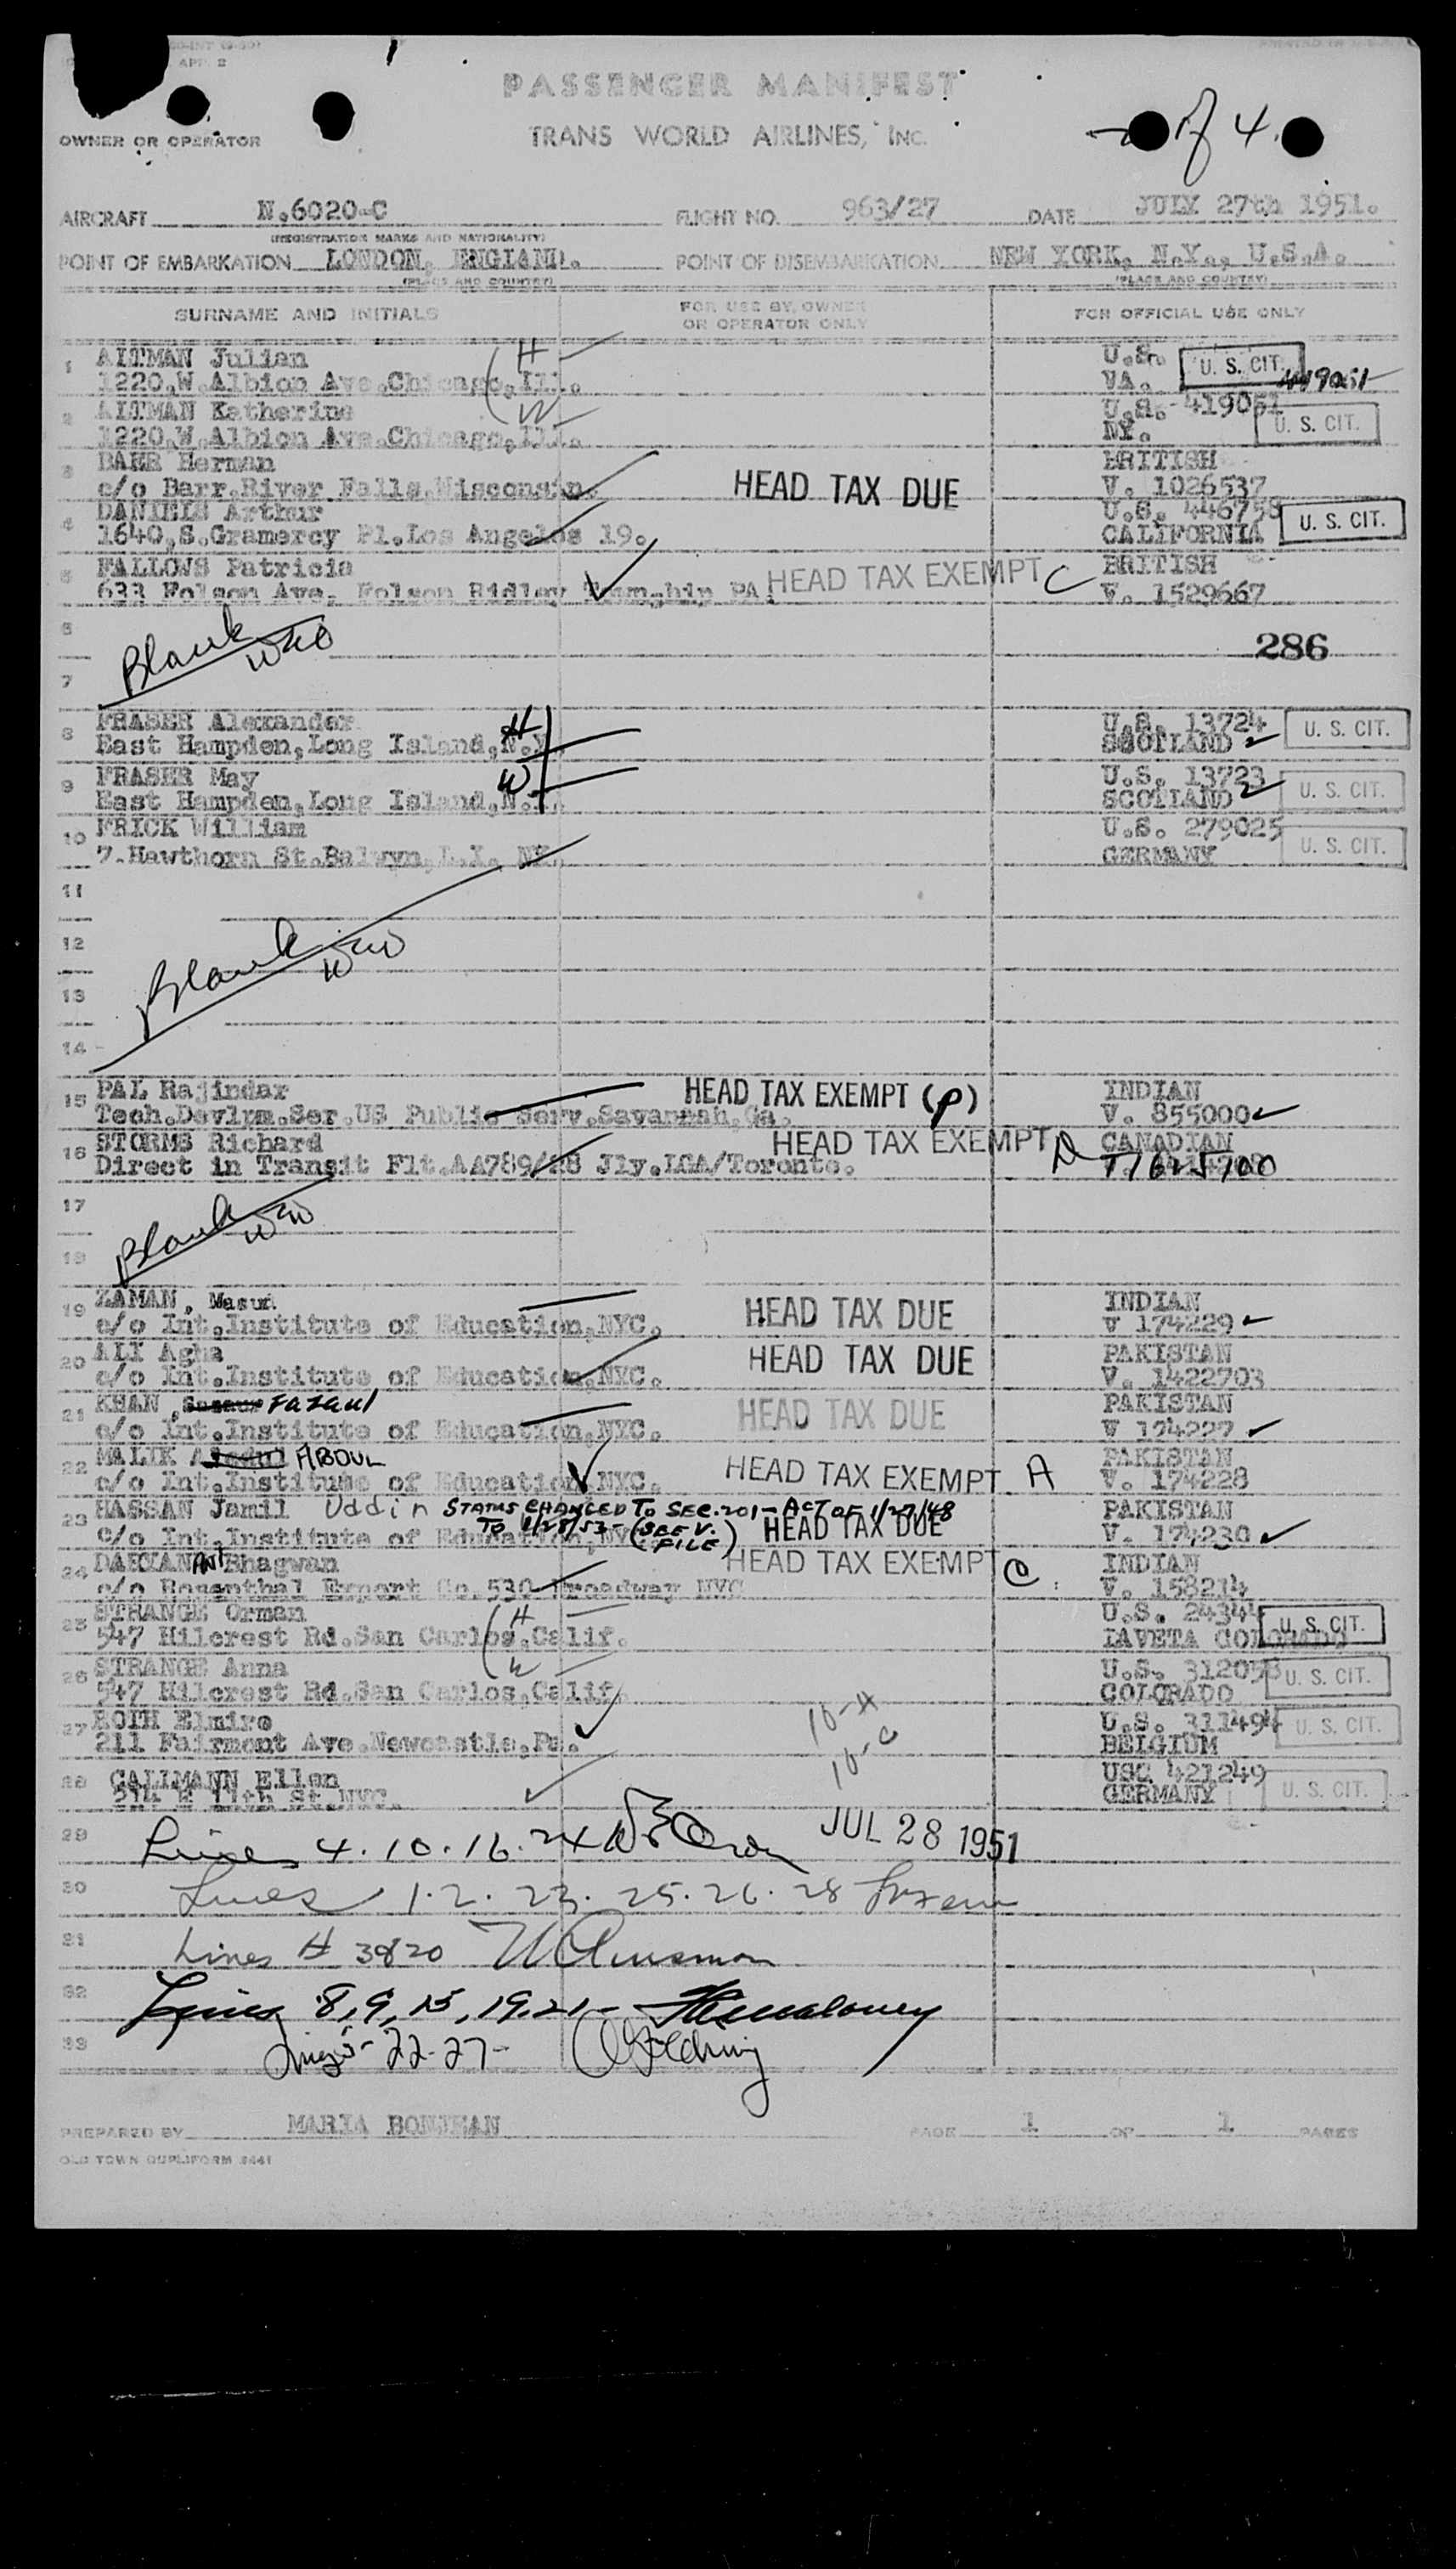 APP. 2
PASSENGER MANIFEST
OWNER OR OPERATOR
TRANS WORLD AIRLINES, INC.
of 4.
AIRCRAFT N.6020-C FLIGHT NO. 963/27 DATE JULY 27th 1951.
(REGISTRATION MARKS AND NATIONALITY)
POINT OF EMBARKATION LONDON, ENGLAND. POINT OF DISEMBARKATION NEW YORK, N.Y., U.S.A.
(PLACE AND COUNTRY) (PLACE AND COUNTRY)
SURNAME AND INITIALS FOR USE BY OWNER OR OPERATOR ONLY FOR OFFICIAL USE ONLY
1 AITMAN Julian H U.S. U. S. CIT.
1220,W.Albion Ave.Chicago,Ill. VA.
2 AITMAN Katherine W U.S. 419051
1220,W.Albion Ave.Chicago,Ill. NY. U. S. CIT.
3 BAER Herman BRITISH
c/o Barr,River Falls,Wisconsin. HEAD TAX DUE V. 1026537
4 DANIELS Arthur U.S. 446758
1640,S.Gramercy Pl.Los Angelos 19. CALIFORNIA U. S. CIT.
5 FALLOWS Patricia HEAD TAX EXEMPT C BRITISH
633 Folson Ave, Folson Ridley Township PA. V. 1529667
6 Blank 286
7
8 FRASER Alexander H U.S. 13724 U. S. CIT.
East Hampden,Long Island,N.Y. SCOTLAND
9 FRASER May W U.S. 13723
East Hampden,Long Island,N.Y. SCOTLAND U. S. CIT.
10 FRICK William U.S. 279025
7.Hawthorn St.Balwyn,L.I. NY. GERMANY U. S. CIT.
11
12
Blank
13
14
15 PAL Rajindar HEAD TAX EXEMPT (P) INDIAN
Tech.Devlpm.Ser.US Public Serv.Savannah,Ga. V. 855000
16 STORMS Richard HEAD TAX EXEMPT D CANADIAN
Direct in Transit Flt.AA789/28 Jly.LGA/Toronto. T1625700
17
Blank
18
19 ZAMAN, Masud INDIAN
c/o Int.Institute of Education,NYC. HEAD TAX DUE V 174229
20 ALI Agha PAKISTAN
c/o Int.Institute of Education,NYC. HEAD TAX DUE V. 1422703
21 KHAN, Fazaul PAKISTAN
c/o Int.Institute of Education,NYC. HEAD TAX DUE V 174227
22 MALIK ABDUL PAKISTAN
c/o Int.Institute of Education,NYC. HEAD TAX EXEMPT A V. 174228
23 HASSAN Jamil Uddin STATUS CHANGED TO SEC.201-ACT OF 1/27/48 PAKISTAN
c/o Int.Institute of Education,NYC. TO 1/28/53-(SEE V. FILE) HEAD TAX DUE V. 174230
24 Bhagwan HEAD TAX EXEMPT C INDIAN
c/o Rosenthal Export Co.530 Broadway NYC V. 158214
25 STRANGE Orman H U.S. 24344
547 Hilcrest Rd.San Carlos,Calif. IAVETA COLORADO U. S. CIT.
26 STRANGE Anna W U.S. 312058
547 Hilcrest Rd.San Carlos,Calif. COLORADO U. S. CIT.
27 ROTH Elmire 10-A U.S. 311494
211 Fairmont Ave.Newcastle,Pa. 10-C BELGIUM U. S. CIT.
28 CALLMANN Ellen USC 421249
St.NYC. GERMANY U. S. CIT.
29 Lines 4.10.16.24 JUL 28 1951
30 Lines 1.2.23.25.26.28
31 Lines # 3&20
32 Lines 8,9,15,19,21-
33 Lines 5-22-27-
PREPARED BY MARIA BONJEAN PAGE 1 OF 1 PAGES
OLD TOWN DUPLIFORM 8441